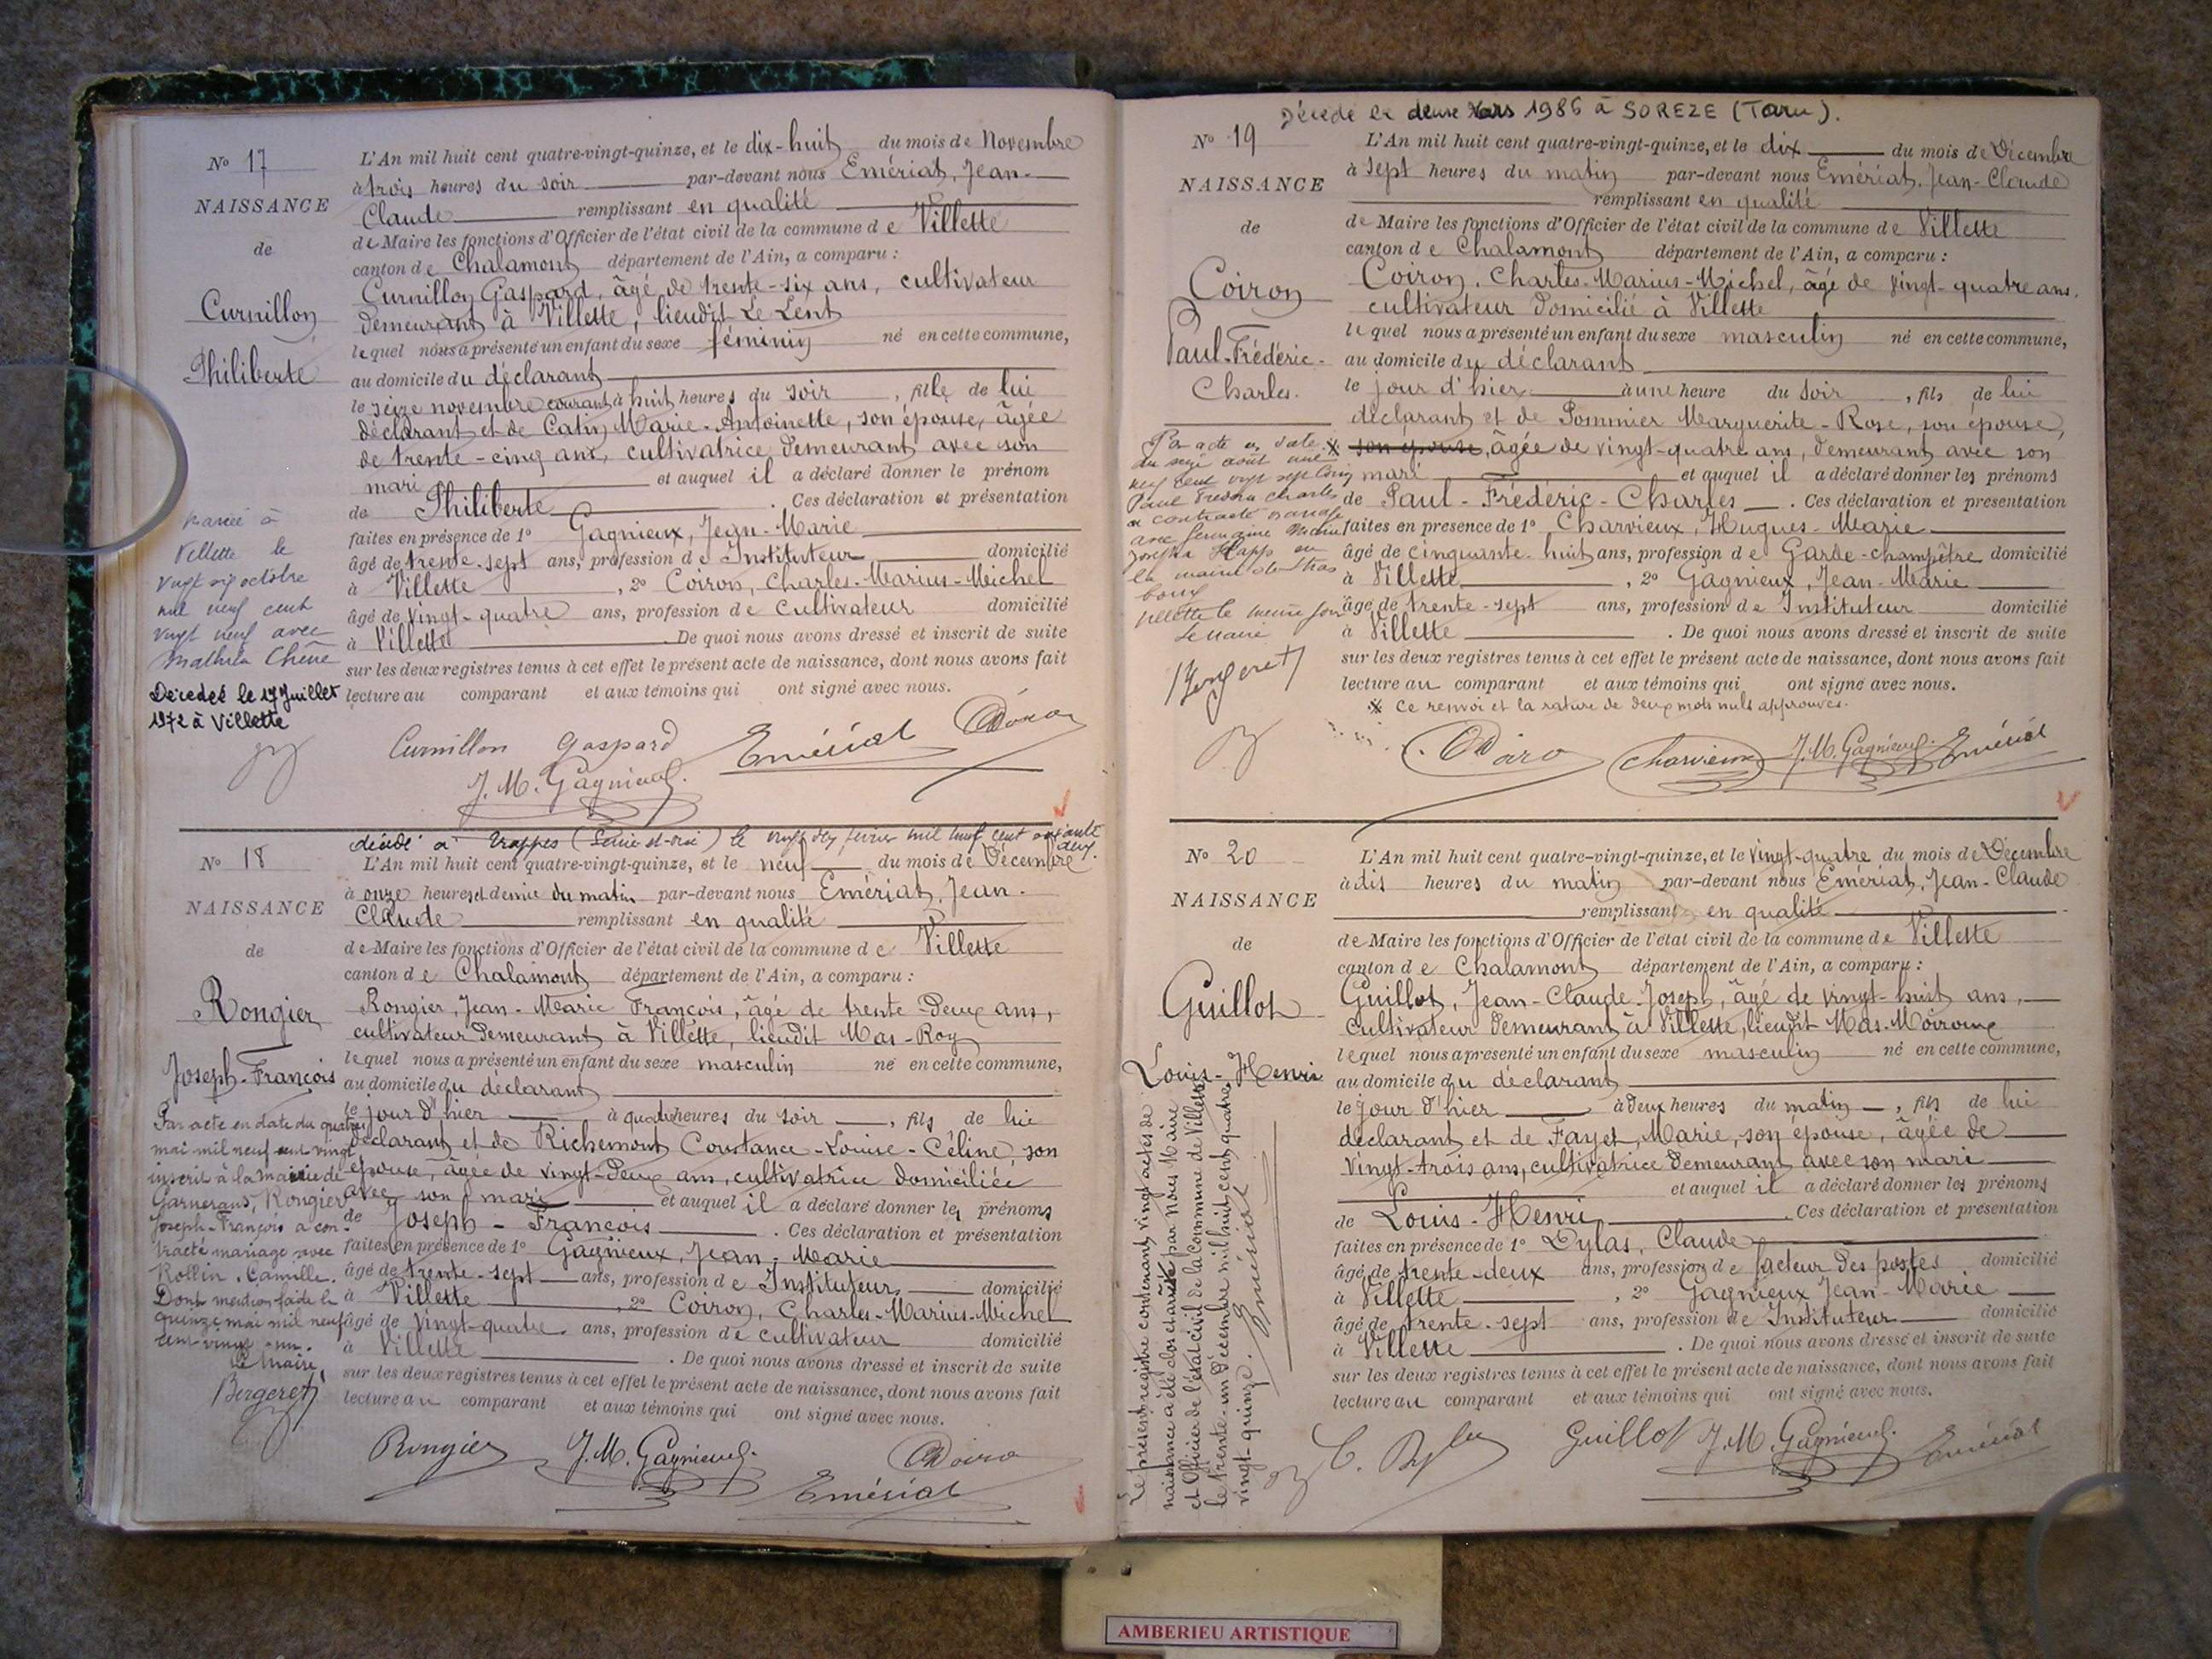 N° 17
NAISSANCE
de
Curnillon
Philiberte
mariée à
Villette le
vingt six octobre
mil neuf cent
vingt neuf avec
Mathieu Chêne
Décédée le 17 Juillet
1972 à Villette
L'An mil huit cent quatre-vingt-quinze, et le dix-huit du mois de Novembre
à trois heures du soir par-devant nous Emériat, Jean-
Claude remplissant en qualité
de Maire les fonctions d'Officier de l'état civil de la commune de Villette
canton de Chalamont département de l'Ain, a comparu :
Curnillon Gaspard, âgé de trente-six ans, cultivateur
demeurant à Villette, lieudit Le Lent
lequel nous a présenté un enfant du sexe féminin né en cette commune,
au domicile du déclarant
le seize novembre courant à huit heures du soir, fille de lui
déclarant et de Catin Marie-Antoinette, son épouse, âgée
de trente-cinq ans, cultivatrice demeurant avec son
mari et auquel il a déclaré donner le prénom
de Philiberte. Ces déclaration et présentation
faites en présence de 1° Gagnieux, Jean-Marie
âgé de trente-sept ans, profession de Instituteur domicilié
à Villette, 2° Coiron, Charles-Marius-Michel
âgé de vingt-quatre ans, profession de cultivateur domicilié
à Villette. De quoi nous avons dressé et inscrit de suite
sur les deux registres tenus à cet effet le présent acte de naissance, dont nous avons fait
lecture au comparant et aux témoins qui ont signé avec nous.
Curnillon Gaspard Emériat
J. M. Gagnieux
décédé à Trappes (Seine-et-Oise) le vingt février mil neuf cent soixante deux.
N° 18
NAISSANCE
de
Rongier
Joseph-François
Par acte en date du quatre
mai mil neuf cent vingt
inscrit à la Mairie de
Garnerans, Rongier
Joseph-François a con-
tracté mariage avec
Rollin, Camille.
Dont mention faite le
quinze mai mil neuf
cent-vingt-un.
Le Maire,
Bergeret
L'An mil huit cent quatre-vingt-quinze, et le neuf du mois de Décembre
à onze heures et demie du matin par-devant nous Emériat, Jean-
Claude remplissant en qualité
de Maire les fonctions d'Officier de l'état civil de la commune de Villette
canton de Chalamont département de l'Ain, a comparu :
Rongier, Jean-Marie François, âgé de trente-deux ans,
cultivateur demeurant à Villette, lieudit Mas-Roy
lequel nous a présenté un enfant du sexe masculin né en cette commune,
au domicile du déclarant
le jour d'hier à quatre heures du soir, fils de lui
déclarant et de Richemont Constance-Louise-Céline, son
épouse, âgée de vingt-deux ans, cultivatrice domiciliée
avec son mari et auquel il a déclaré donner les prénoms
de Joseph-François. Ces déclaration et présentation
faites en présence de 1° Gagnieux, Jean-Marie
âgé de trente-sept ans, profession de Instituteur domicilié
à Villette, 2° Coiron, Charles-Marius-Michel
âgé de vingt-quatre ans, profession de cultivateur domicilié
à Villette. De quoi nous avons dressé et inscrit de suite
sur les deux registres tenus à cet effet le présent acte de naissance, dont nous avons fait
lecture au comparant et aux témoins qui ont signé avec nous.
Rongier J. M. Gagnieux
Emériat
Décédé le deux Mars 1986 à SOREZE (Tarn).
N° 19
NAISSANCE
de
Coiron
Paul-Frédéric-
Charles.
Par acte en date
du seize août mil
neuf cent vingt sept Coiron
Paul Frédéric Charles
a contracté mariage
avec Germaine Marie
Josepha Happ en
la mairie de Stras
bourg
Villette le même jour
Le Maire
Bergeret
L'An mil huit cent quatre-vingt-quinze, et le dix du mois de Décembre
à sept heures du matin par-devant nous Emériat, Jean-Claude
remplissant en qualité
de Maire les fonctions d'Officier de l'état civil de la commune de Villette
canton de Chalamont département de l'Ain, a comparu :
Coiron, Charles-Marius-Michel, âgé de vingt-quatre ans,
cultivateur domicilié à Villette
lequel nous a présenté un enfant du sexe masculin né en cette commune,
au domicile du déclarant
le jour d'hier à une heure du soir, fils de lui
déclarant et de Pommier Marguerite-Rose, son épouse,
※ son épouse, âgée de vingt-quatre ans, demeurant avec son
mari et auquel il a déclaré donner les prénoms
de Paul-Frédéric-Charles. Ces déclaration et présentation
faites en présence de 1° Charvieux, Hugues-Marie
âgé de cinquante-huit ans, profession de Garde-champêtre domicilié
à Villette, 2° Gagnieux, Jean-Marie
âgé de trente-sept ans, profession de Instituteur domicilié
à Villette. De quoi nous avons dressé et inscrit de suite
sur les deux registres tenus à cet effet le présent acte de naissance, dont nous avons fait
lecture au comparant et aux témoins qui ont signé avec nous.
※ Ce renvoi et la rature de deux mots nuls approuvés.
Charvieux J. M. Gagnieux Emériat
N° 20
NAISSANCE
de
Guillot
Louis-Henri
Le présent registre contenant vingt actes de
naissance a été clos et arrêté par Nous Maire
et Officier de l'état civil de la Commune de Villette
le trente-un Décembre mil huit cent quatre
vingt-quinze. Emériat
L'An mil huit cent quatre-vingt-quinze, et le vingt-quatre du mois de Décembre
à dix heures du matin par-devant nous Emériat, Jean-Claude
remplissant en qualité
de Maire les fonctions d'Officier de l'état civil de la commune de Villette
canton de Chalamont département de l'Ain, a comparu :
Guillot, Jean-Claude-Joseph, âgé de vingt-huit ans,
cultivateur demeurant à Villette, lieudit Mas-Moiroux
lequel nous a présenté un enfant du sexe masculin né en cette commune,
au domicile du déclarant
le jour d'hier à deux heures du matin, fils de lui
déclarant et de Fayet, Marie, son épouse, âgée de
vingt-trois ans, cultivatrice demeurant avec son mari
et auquel il a déclaré donner les prénoms
de Louis-Henri. Ces déclaration et présentation
faites en présence de 1° Dylas, Claude
âgé de trente-deux ans, profession de facteur des postes domicilié
à Villette, 2° Gagnieux Jean-Marie
âgé de trente-sept ans, profession de Instituteur domicilié
à Villette. De quoi nous avons dressé et inscrit de suite
sur les deux registres tenus à cet effet le présent acte de naissance, dont nous avons fait
lecture au comparant et aux témoins qui ont signé avec nous.
Guillot J. M. Gagnieux Emériat
AMBERIEU ARTISTIQUE